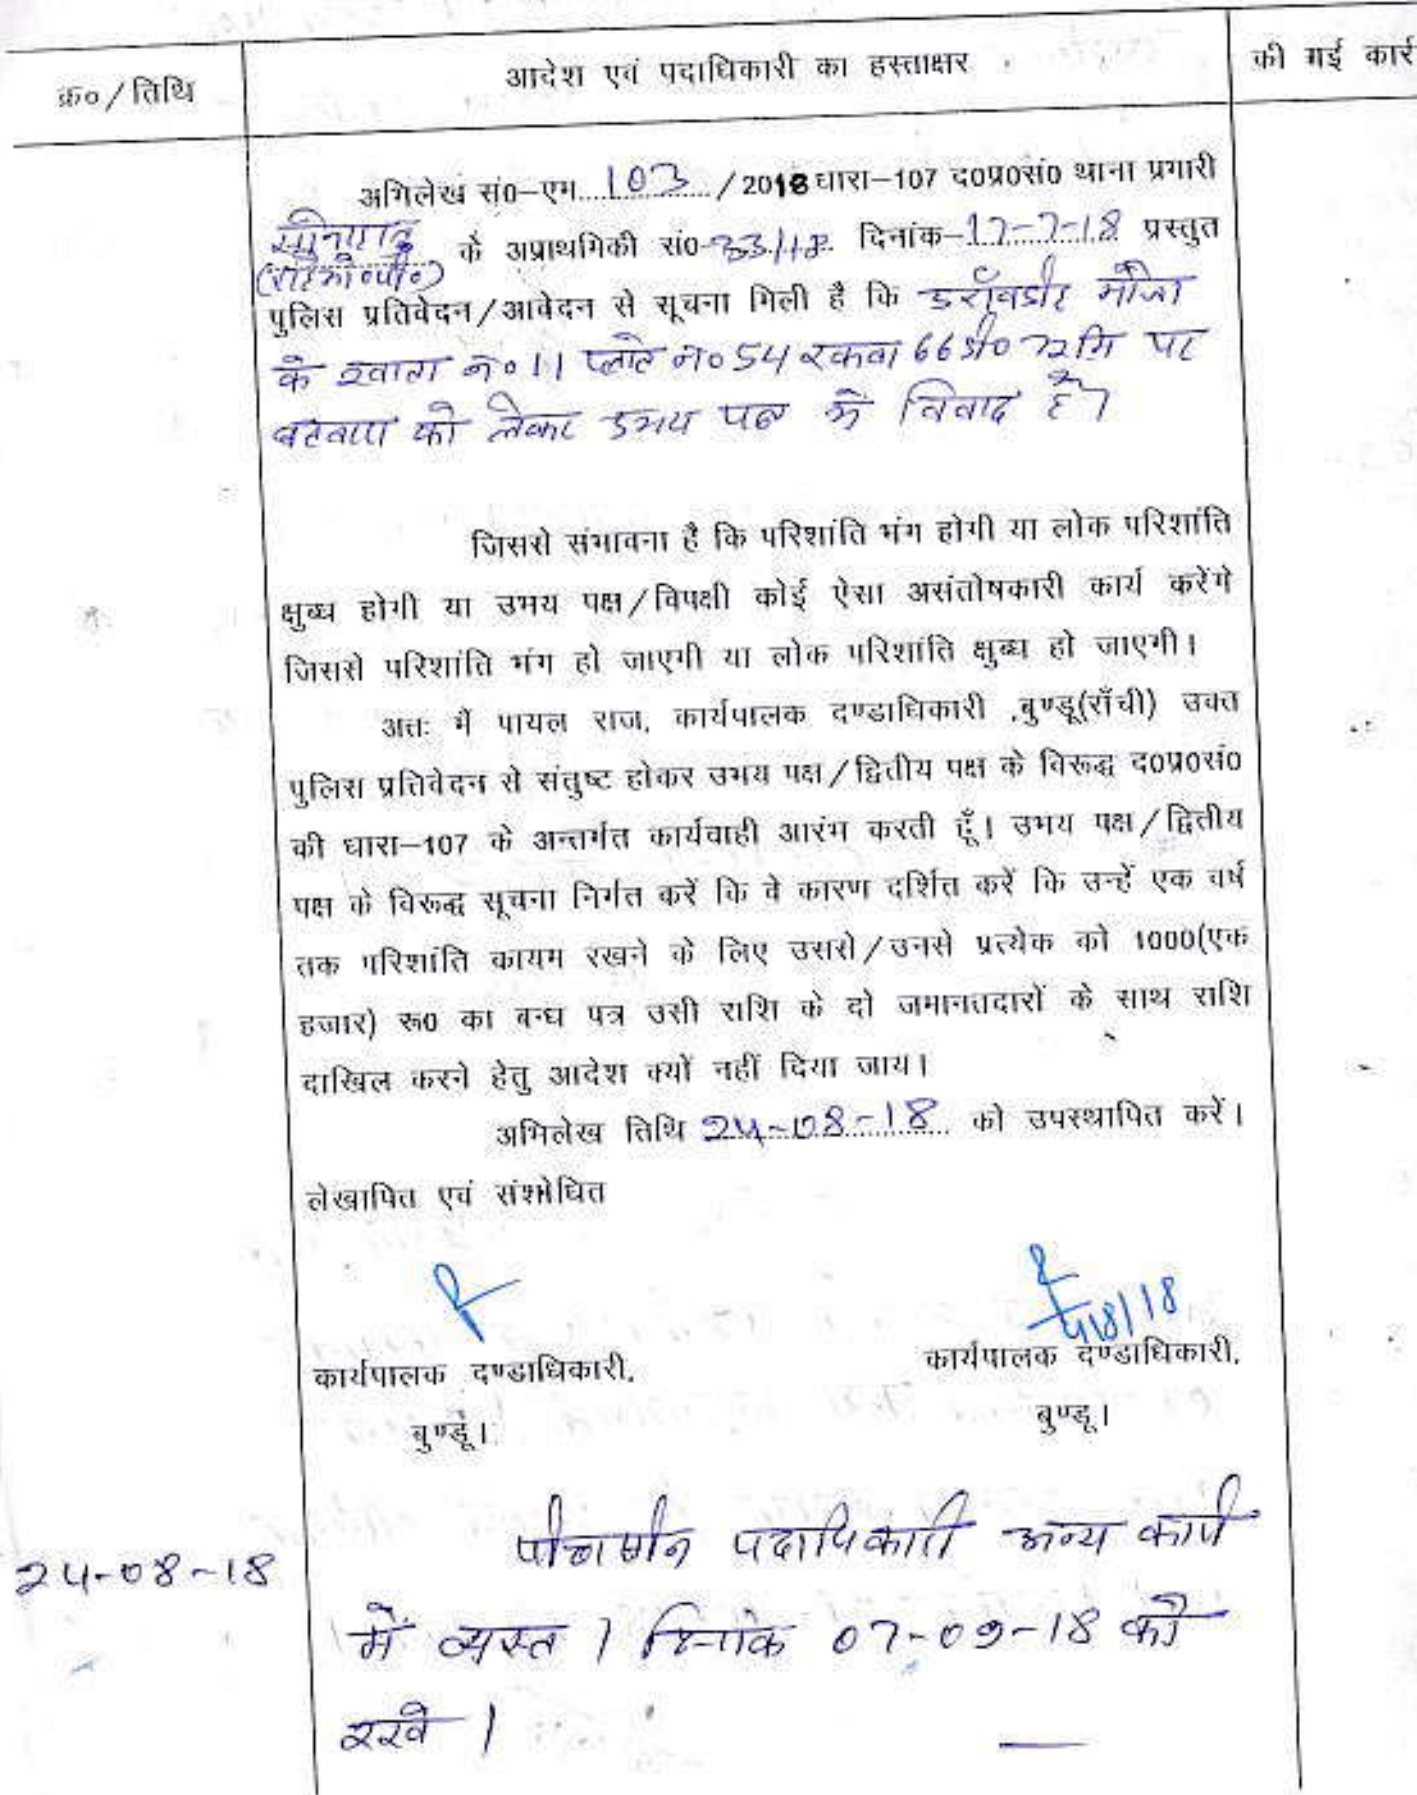 क्र०/तिथि
आदेश एवं पदाधिकारी का हस्ताक्षर
की गई कार्र
अभिलेख सं०-एम 103 /2018 धारा-107 द०प्र०सं० थाना प्रभारी
के अप्राथमिकी सं०-33/18 दिनांक-17-7-18 प्रस्तुत
पुलिस प्रतिवेदन/आवेदन से सूचना मिली है कि मौजा
के खाता न० 11 प्लोट न० 54 रकवा 66 डी० पर
को लेकर उभय पक्ष में विवाद है।
जिससे संभावना है कि परिशांति भंग होगी या लोक परिशांति
क्षुब्ध होगी या उभय पक्ष/विपक्षी कोई ऐसा असंतोषकारी कार्य करेंगे
जिससे परिशांति भंग हो जाएगी या लोक परिशांति क्षुब्ध हो जाएगी।
अतः मैं पायल राज, कार्यपालक दण्डाधिकारी ,बुण्डू(राँची) उक्त
पुलिस प्रतिवेदन से संतुष्ट होकर उभय पक्ष/द्वितीय पक्ष के विरूद्ध द०प्र०सं०
की धारा-107 के अन्तर्गत कार्यवाही आरंभ करती हूँ। उभय पक्ष/द्वितीय
पक्ष के विरूद्ध सूचना निर्गत करें कि वे कारण दर्शित करें कि उन्हें एक वर्ष
तक परिशांति कायम रखने के लिए उससे/उनसे प्रत्येक को 1000(एक
हजार) रू० का बन्ध पत्र उसी राशि के दो जमानतदारों के साथ राशि
दाखिल करने हेतु आदेश क्यों नहीं दिया जाय।
अभिलेख तिथि 24-08-18 को उपस्थापित करें।
लेखापित एवं संशोधित
कार्यपालक दण्डाधिकारी,
बुण्डू।
कार्यपालक दण्डाधिकारी,
बुण्डू।
24-08-18
पदाधिकारी अन्य कार्य
में व्यस्त। दिनांक 07-09-18 को
रखे।